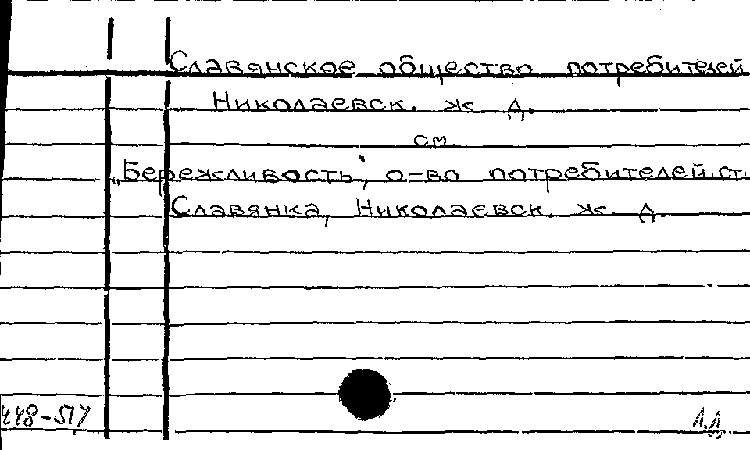 Славянское общество потребителей
Николаевск. ж. д.
см.
„Бережливость", о-во потребителей ст.
Славянка, Николаевск. ж. д.
448-517